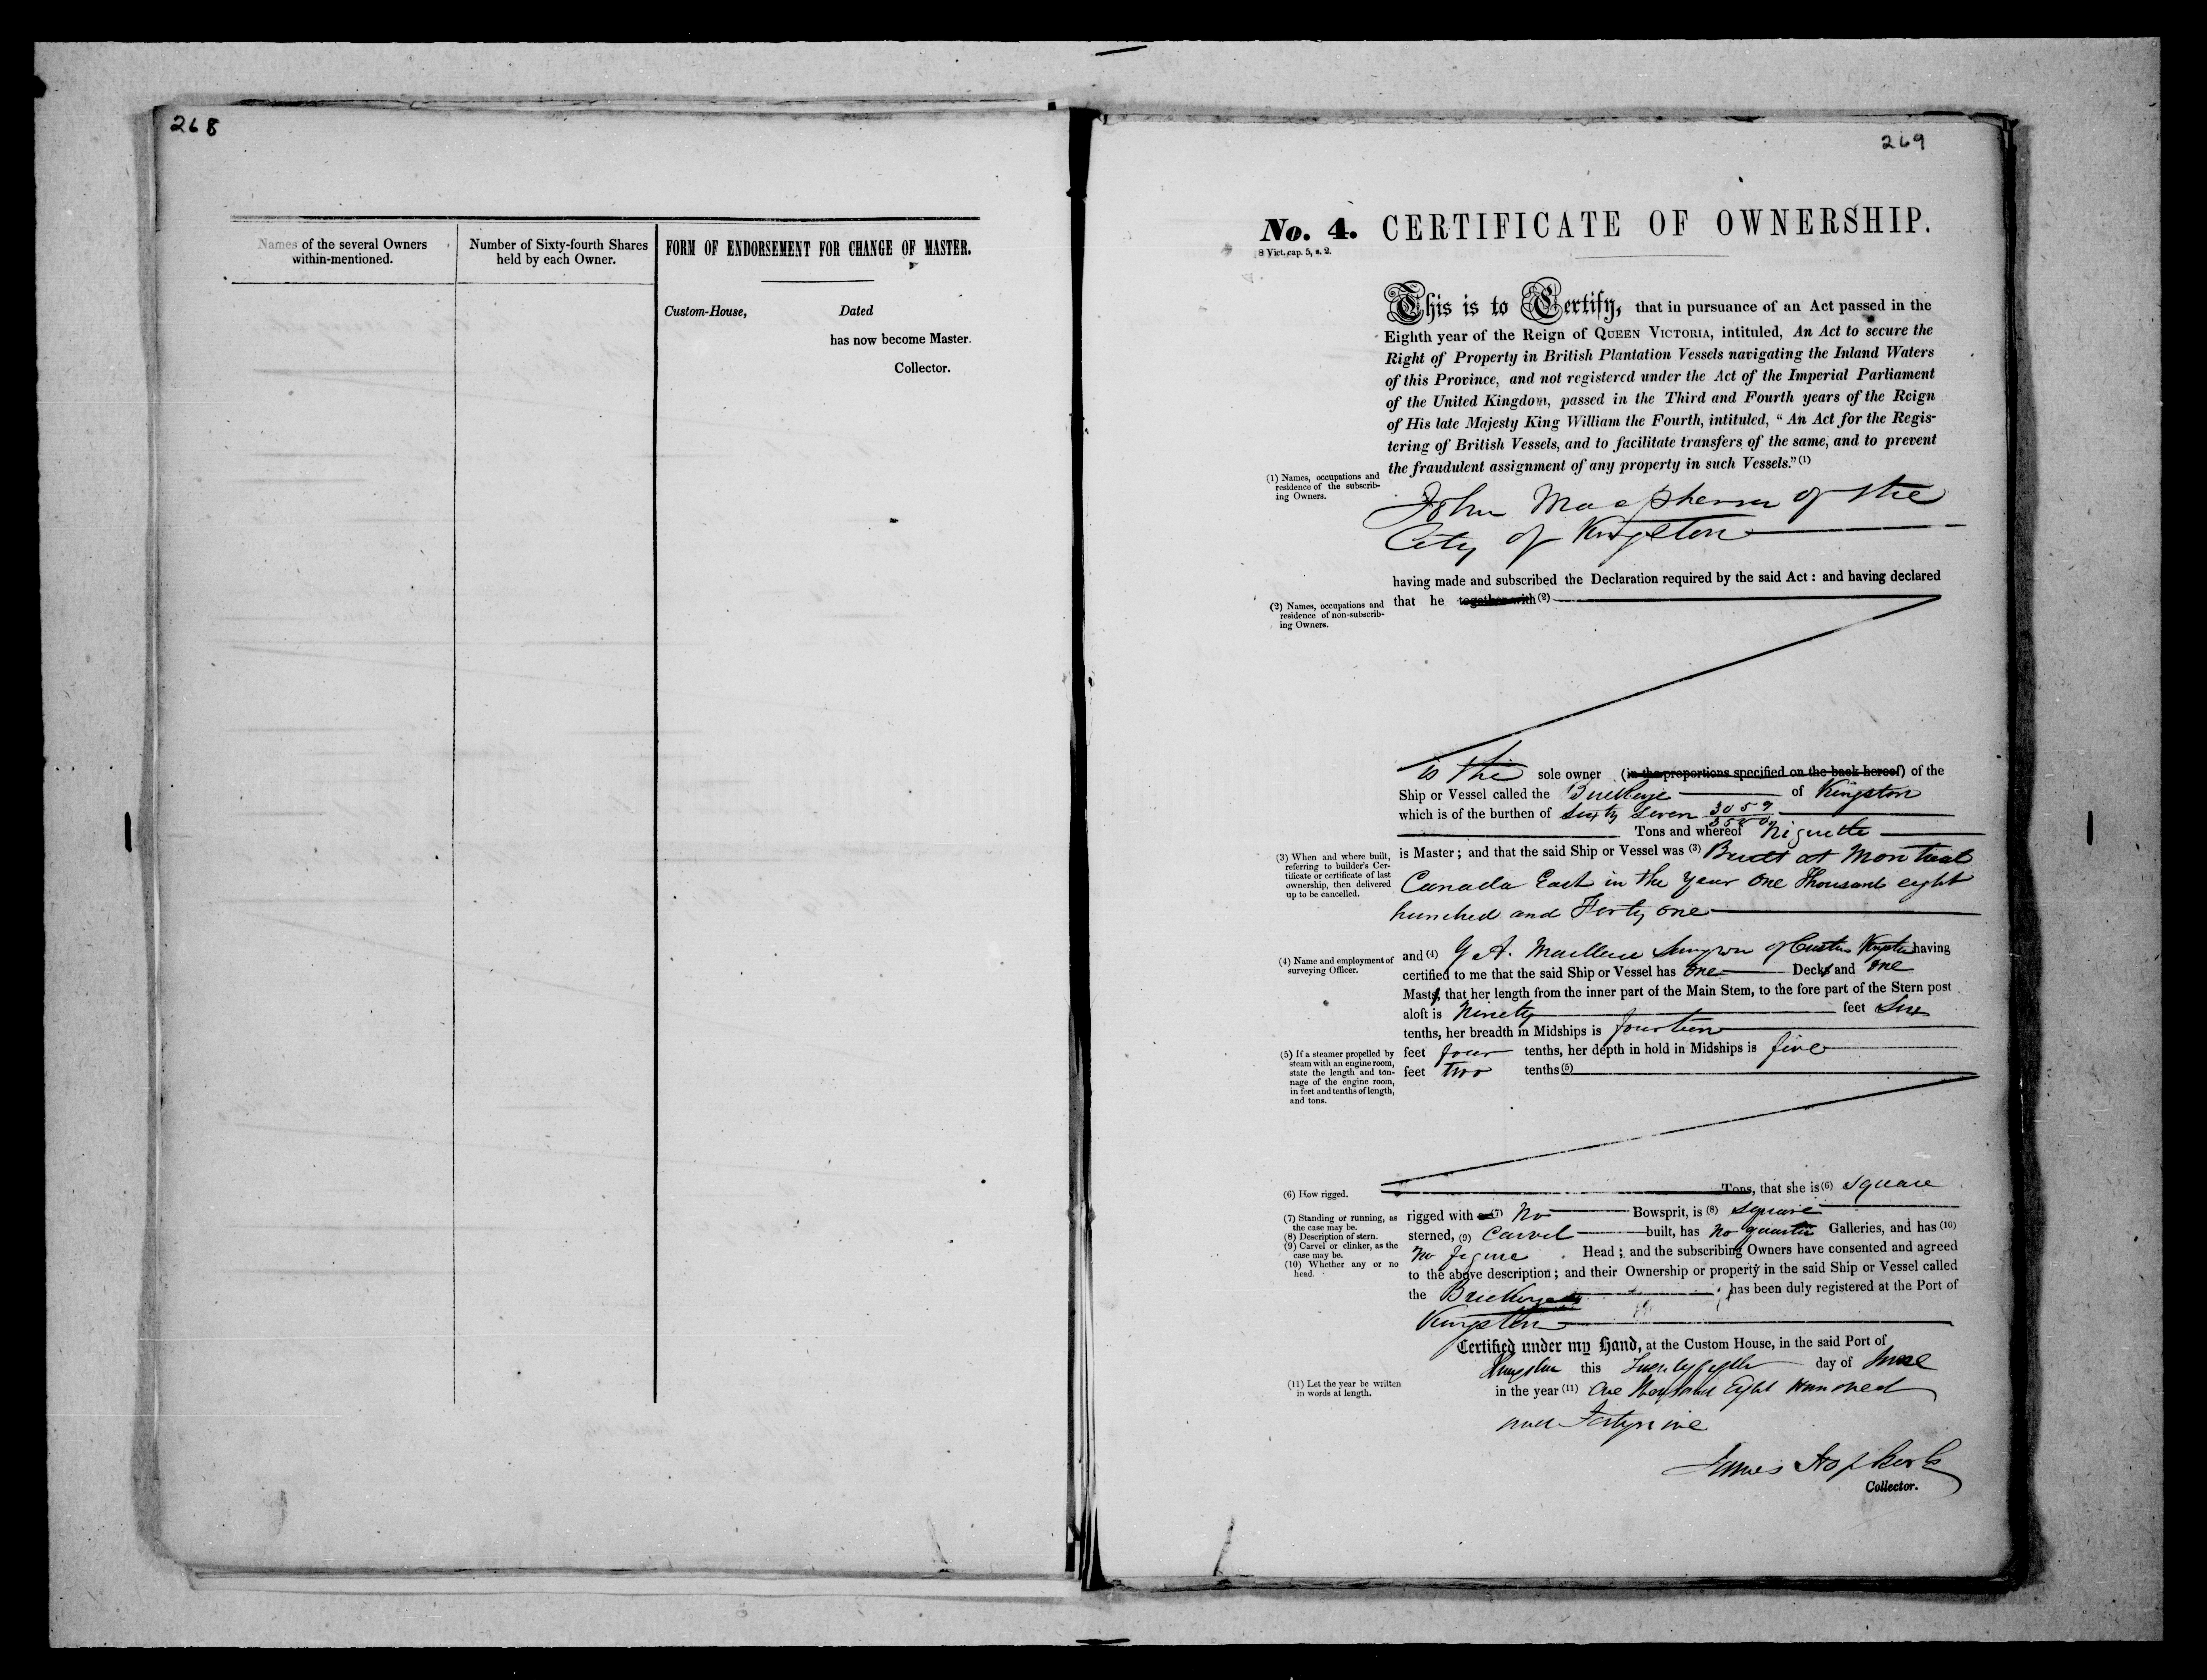 268
Names of the several Owners
within-mentioned.
Number of Sixty-fourth Shares
held by each Owner.
FORM OF ENDORSEMENT FOR CHANGE OF MASTER.
Custom-House, Dated
has now become Master.
Collector.
269
No. 4. CERTIFICATE OF OWNERSHIP.
8 Vict. cap. 5, s. 2.
This is to Certify, that in pursuance of an Act passed in the
Eighth year of the Reign of QUEEN VICTORIA, intituled, An Act to secure the
Right of Property in British Plantation Vessels navigating the Inland Waters
of this Province, and not registered under the Act of the Imperial Parliament
of the United Kingdom, passed in the Third and Fourth years of the Reign
of His late Majesty King William the Fourth, intituled, “ An Act for the Regis-
tering of British Vessels, and to facilitate transfers of the same, and to prevent
the fraudulent assignment of any property in such Vessels.” (1)
(1) Names, occupations and
residence of the subscrib-
ing Owners.
John Macpherson of the
City of Kingston
having made and subscribed the Declaration required by the said Act : and having declared
that he together with (2)
(2) Names, occupations and
residence of non-subscrib-
ing Owners.
is the sole owner (in the proportions specified on the back hereof) of the
Ship or Vessel called the Buckeye of Kingston
which is of the burthen of Sixty Seven 3059/3500
Tons and whereof
is Master ; and that the said Ship or Vessel was (3) Built at Montreal
Canada East in the Year One Thousand eight
hundred and Forty one
(3) When and where built,
referring to builder's Cer-
tificate or certificate of last
ownership, then delivered
up to be cancelled.
and (4) G A. Surveyor of Customs Kingston having
certified to me that the said Ship or Vessel has One Decks and One
Masts, that her length from the inner part of the Main Stem, to the fore part of the Stern post
aloft is Ninety feet Six
tenths, her breadth in Midships is fourteen
feet four tenths, her depth in hold in Midships is five
feet two tenths (5)
(4) Name and employment of
surveying Officer.
(5) If a steamer propelled by
steam with an engine room,
state the length and ton-
nage of the engine room,
in feet and tenths of length,
and tons.
Tons, that she is (6) Square
rigged with a (7) No Bowsprit, is (8) Square
sterned, (9) Carvel built, has No quarter Galleries, and has (10)
No figure Head ; and the subscribing Owners have consented and agreed
to the above description ; and their Ownership or property in the said Ship or Vessel called
the Buckeye has been duly registered at the Port of
Kingston
(6) How rigged.
(7) Standing or running, as
the case may be.
(8) Description of stern.
(9) Carvel or clinker, as the
case may be.
(10) Whether any or no
head.
Certified under my Hand, at the Custom House, in the said Port of
Kingston this Twentyfifth day of June
in the year (11) One Thousand Eight Hundred
and Fortynine
(11) Let the year be written
in words at length.
James Hopkirk
Collector.